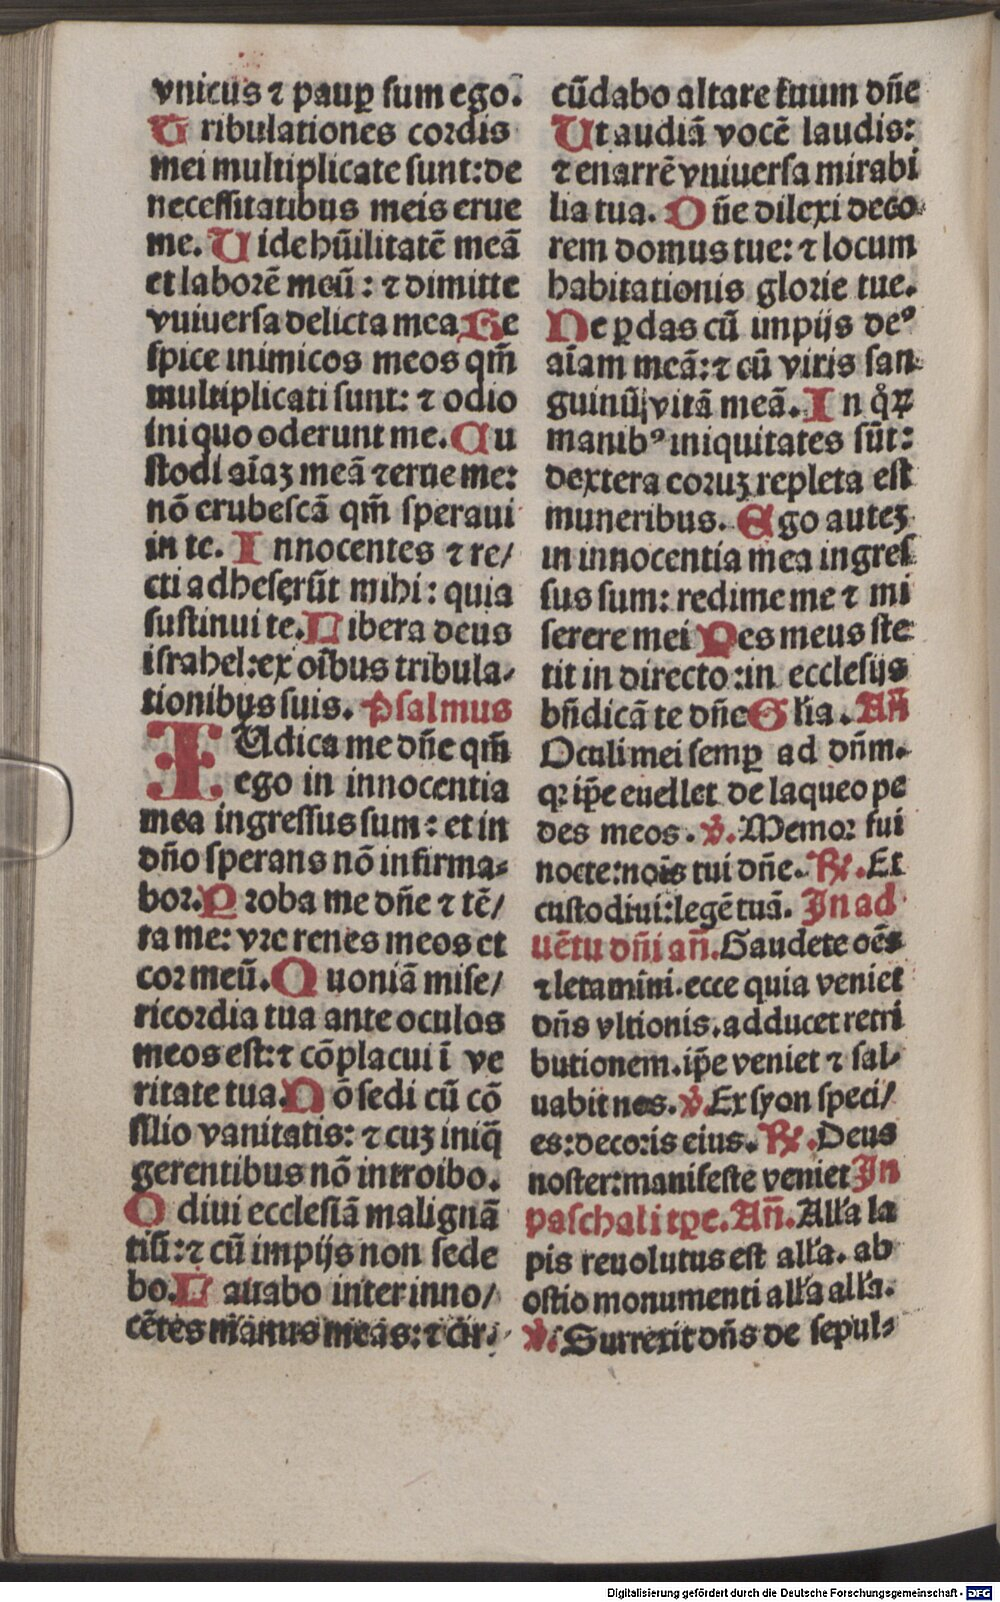 vnicus ⁊ paup̱ sum ego.
Tribulationes cordis
mei multiplicate sunt: de
necessitatibus meis erue
me. Uide hūilitatē meā
et laborē meū: ⁊ dimitte
vniuersa delicta mea Re
spice inimicos meos qm̄
multiplicati sunt: ⁊ odio
iniquo oderunt me. Cu
stodi aīaꝫ meā ⁊ erue me:
nō erubescā qm̄ speraui
in te. Innocentes ⁊ re/
cti adheserūt mihi: quia
sustinui te. Libera deus
israhel: ex oībus tribula⸗
tionibus suis. Psalmus
IUdica me dn̄e qm̄
ego in innocentia
mea ingressus sum: et in
dn̄o sperans nō infirma⸗
bor. Proba me dn̄e ⁊ tē/
ta me: vre renes meos et
cor meū. Quoniā mise/
ricordia tua ante oculos
meos est: ⁊ cōplacui ī ve
ritate tua. Nō sedi cū cō
silio vanitatis: ⁊ cuꝫ iniq̄
gerentibus nō introibo.
Odiui ecclesiā malignā
tiū: ⁊ cū impijs non sede
bo. Lauabo inter inno/
cētes manus meas: ⁊ cir⸗
cūdabo altare tuum dn̄e
Ut audiā vocē laudis:
⁊ enarrē vniuersa mirabi
lia tua. Dn̄e dilexi deco⸗
rem domus tue: ⁊ locum
habitationis glorie tue.
Ne ꝑdas cū impijs deꝰ
aīam meā: ⁊ cū viris san⸗
guinū vitā meā. In qͦꝝ
manibꝰ iniquitates sūt:
dextera eoruꝫ repleta est
muneribus. Ego auteꝫ
in innocentia mea ingres
sus sum: redime me ⁊ mi
serere mei Pes meus ste
tit in directo: in ecclesijs
bn̄dicā te dn̄e Gl'ia. An̄
Oculi mei semꝑ ad dn̄m.
qꝛ ip̄e euellet de laqueo pe
des meos. ℣. Memor fui
nocte: noīs tui dn̄e. ℟. Et
custodiui: legē tuā. In ad
uētu dn̄i an̄. Gaudete oēs
⁊ letamini. ecce quia veniet
dn̄s vltionis. adducet retri
butionem. ip̄e veniet ⁊ sal⸗
uabit nos. ℣. Ex syon speci/
es: decoris eius. ℟. Deus
noster: manifeste veniet In
paschali tꝑe. An̄. All'a la
pis reuolutus est all'a. ab
ostio monumenti all'a all'a.
℣. Surrexit dn̄s de sepul⸗
Digitalisierung gefördert durch die Deutsche Forschungsgemeinschaft - DFG